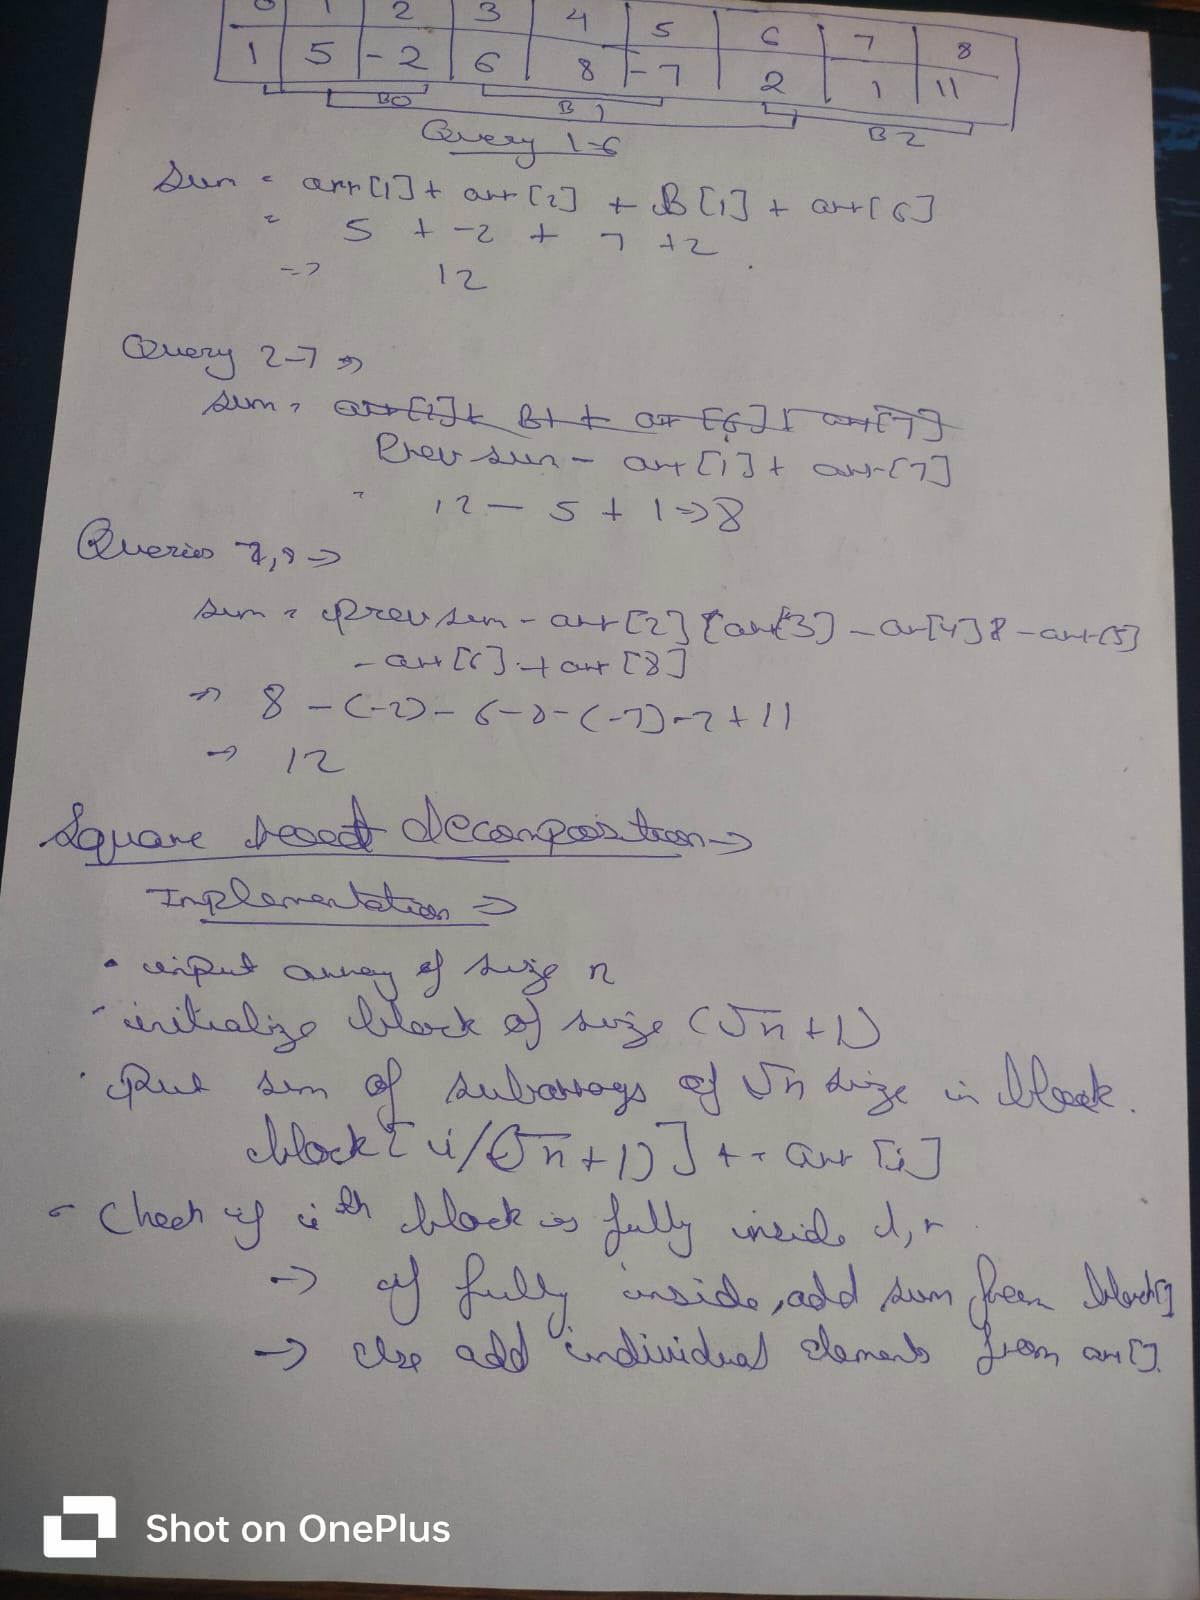 0 1 2 3 4 5 6 7 8
1 5 -2 6 8 -7 2 1 11
B0 B1 B2
Query 1-6
Sum = arr[1] + arr[2] + B[1] + arr[6]
= 5 + -2 + 7 + 2
=> 12
Query 2-7 =>
sum = arr[2] + B1 + arr[6] + arr[7]
Prev sum - arr[1] + arr[7]
= 12 - 5 + 1 => 8
Queries 7,8 =>
sum = prev sum - arr[2] - arr[3] - arr[4] - arr[5]
- arr[6] + arr[8]
=> 8 - (-2) - 6 - 8 - (-7) - 2 + 11
=> 12
Square root decomposition ->
Implementation =>
• input array of size n
- initialize block of size (√n+1)
• Put sum of subarrays of √n size in block.
block[i/(√n+1)] += arr[i]
- Check if ith block is fully inside l,r
-> if fully inside, add sum from block[]
-> else add individual elements from arr[].
Shot on OnePlus